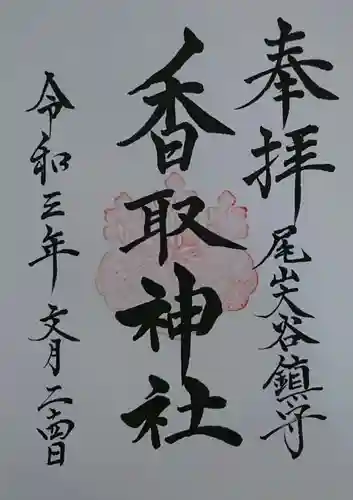 奉拝
尾山大谷鎮守
香取神社
令和三年文月二十四日